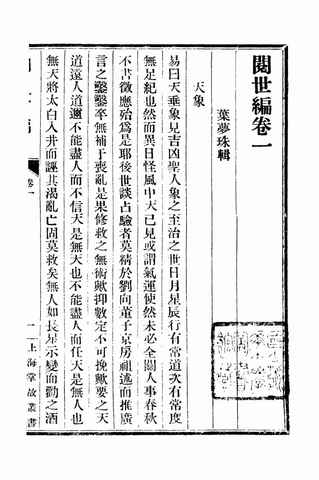 閱世編卷一
葉夢珠輯
天象
易曰天垂象見吉凶聖人象之至治之世日月星辰行有常道次有常度
無足紀也然而異日怪風中天已見或謂氣運使然未必全關人事春秋
不書徵應殆為是耶後世談占驗者莫精於劉向董子京房祖述而推廣
言之鑿鑿卒無補于喪亂是果修救之無術歟抑數定不可挽歟要之天
道遠人道邇不能盡人而不信天是無天也不能盡人而任天是無人也
無天將太白入井而誣其渴亂亡固莫救矣無人如長星示變而勸之酒
卷一
一
上海掌故叢書